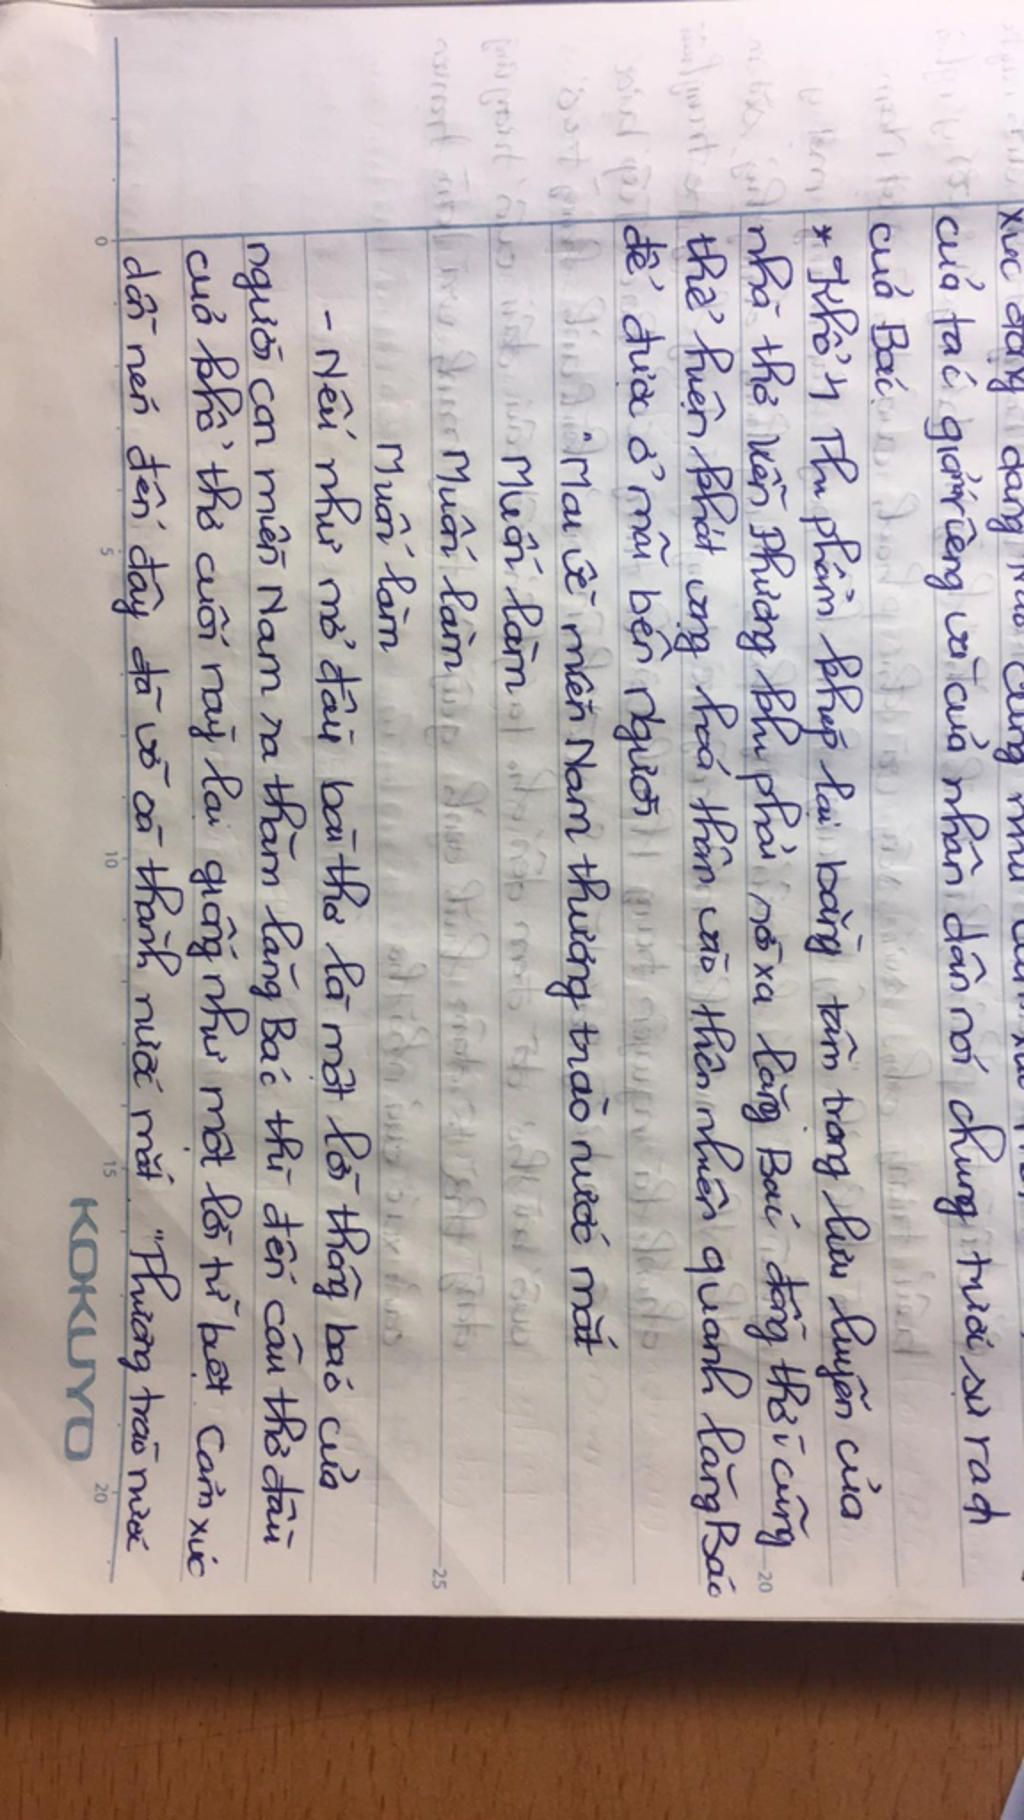 của tác giả riêng và của nhân dân nói chung trước sự ra đi
của Bác
* Khổ 4 Thu phẩm phép lại bằng tâm trạng lưu luyến của
nhà thơ Viễn Phương khi phải rời xa lăng Bác đồng thời cũng
thể hiện khát vọng hoá thân vào thiên nhiên quanh lăng Bác
để được ở mãi bên người
"Mai về miền Nam thương trào nước mắt
Muốn làm
Muốn làm
Muốn làm
- Nếu như mở đầu bài thơ là một lời thông báo của
người con miền Nam ra thăm lăng Bác thì đến câu thơ đầu
của khổ thơ cuối này lại giống như một lời từ biệt. Cảm xúc
dồn nén đến đây đã vỡ oà thành nước mắt "Thương trào nước
0 5 10 15 20
20
25
KOKUYO